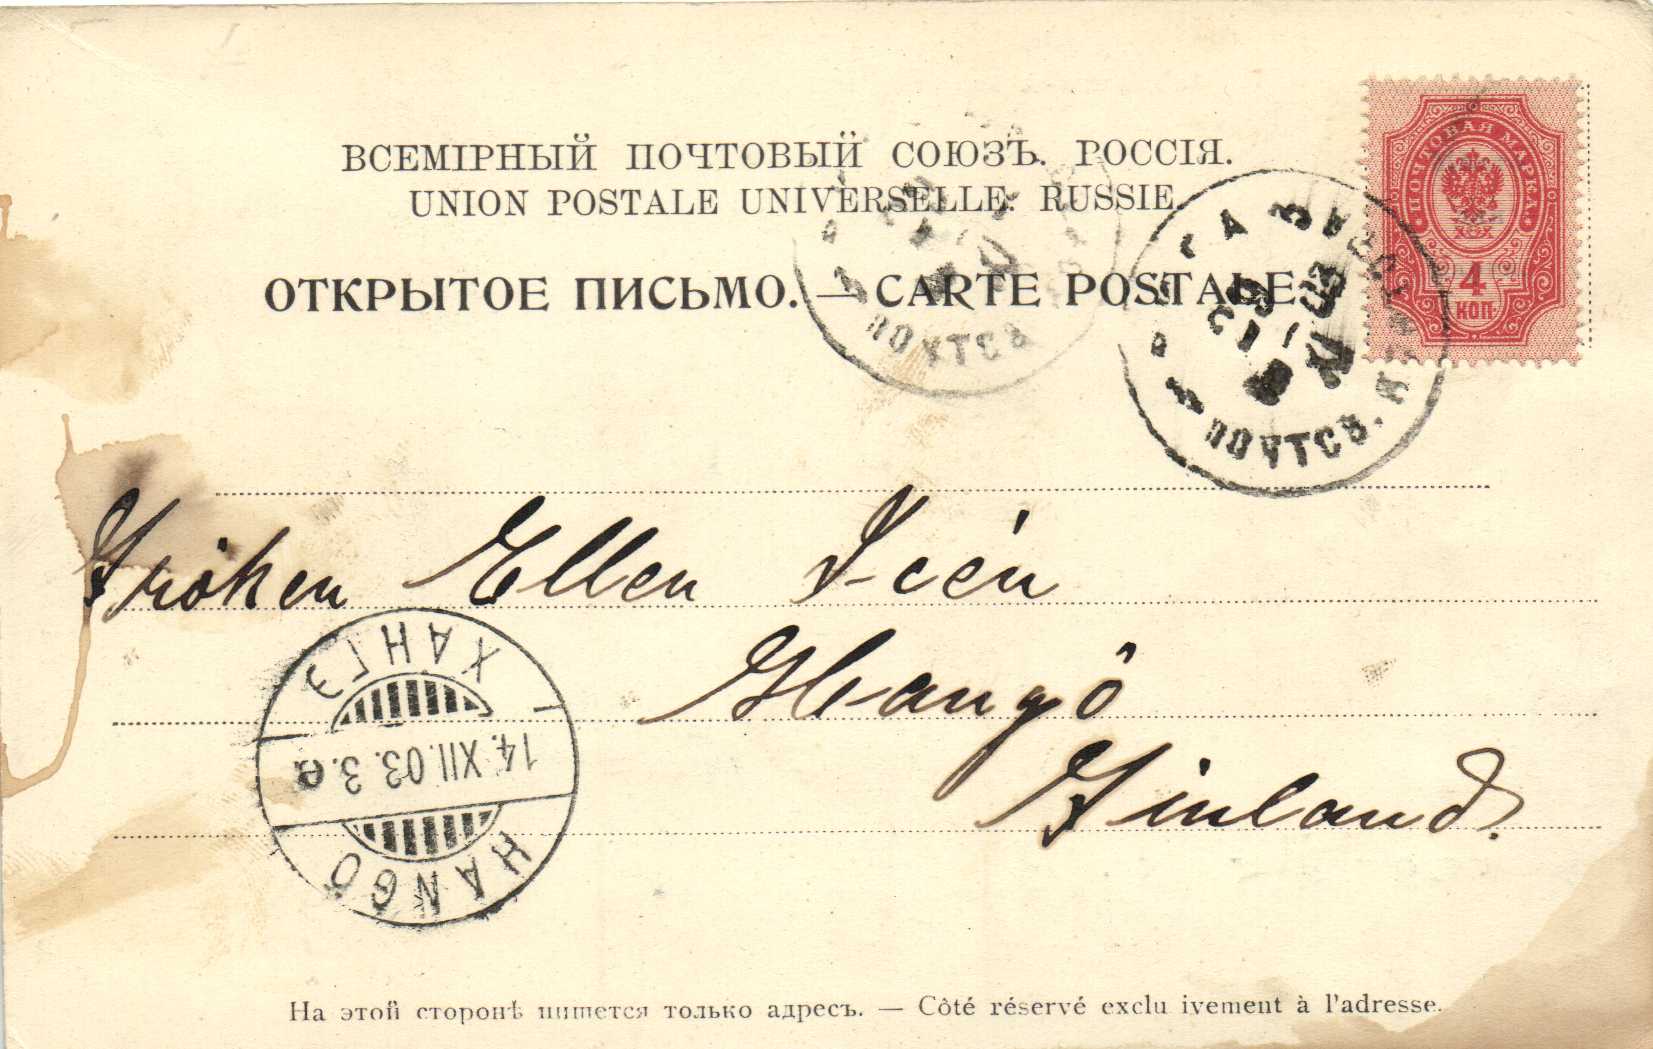 ВСЕМІРНЫЙ ПОЧТОВЫЙ СОЮЗЪ. РОССІЯ.
UNION POSTALE UNIVERSELLE. RUSSIE.
ОТКРЫТОЕ ПИСЬМО. — CARTE POSTALE
ПОЧТОВАЯ МАРКА
4
КОП
ПОЧТОВ.
ПОЧТОВ.
Fröken Ellen Icén
Hangö
Finland.
ХАНГЭ
14.XII.03.3.e
HANGÖ
На этой сторонѣ пишется только адресъ. — Côté réservé exclu ivement à l'adresse.